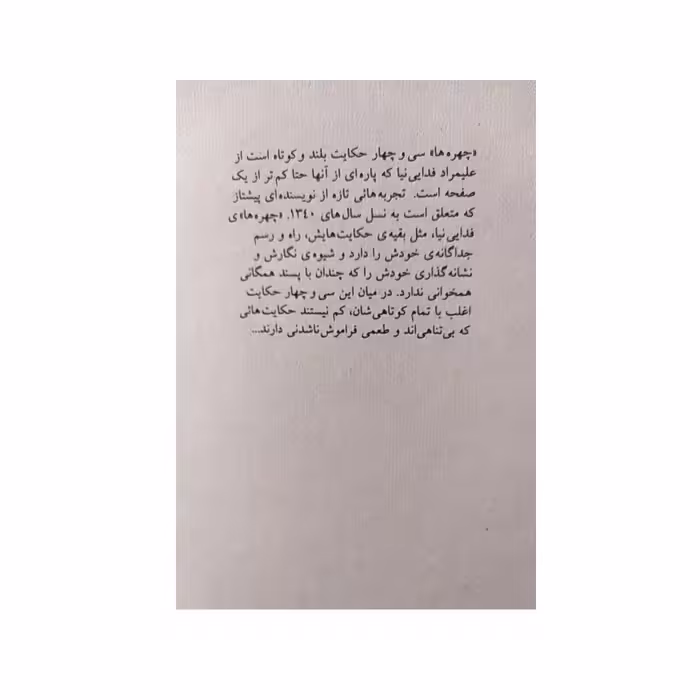 «چهره‌ها» سی و چهار حکایت بلند و کوتاه است از
علیمراد فدایی‌نیا که پاره‌ای از آنها حتا کم‌تر از یک
صفحه است. تجربه‌هائی تازه از نویسنده‌ای پیشتاز
که متعلق است به نسل سال‌های ۱۳۴۰. «چهره‌ها»ی
فدایی‌نیا، مثل بقیه‌ی حکایت‌هایش، راه و رسم
جداگانه‌ی خودش را دارد و شیوه‌ی نگارش و
نشانه‌گذاری خودش را که چندان با پسند همگانی
همخوانی ندارد. در میان این سی و چهار حکایت
اغلب با تمام کوتاهی‌شان، کم نیستند حکایت‌هائی
که بی‌تناهی‌اند و طعمی فراموش‌ناشدنی دارند...